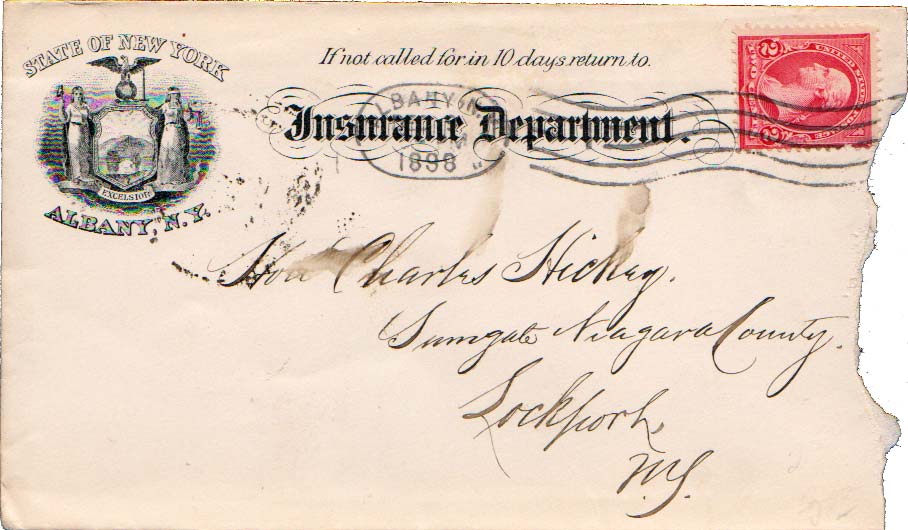 STATE OF NEW YORK
EXCELSIOR
ALBANY, N.Y.
If not called for in 10 days return to.
Insurance Department.
ALBANY N
M
1898
2 2
UNITED STATES
POSTAGE
Hon Charles Hickey.
Surrogate Niagara County.
Lockport,
N.Y.